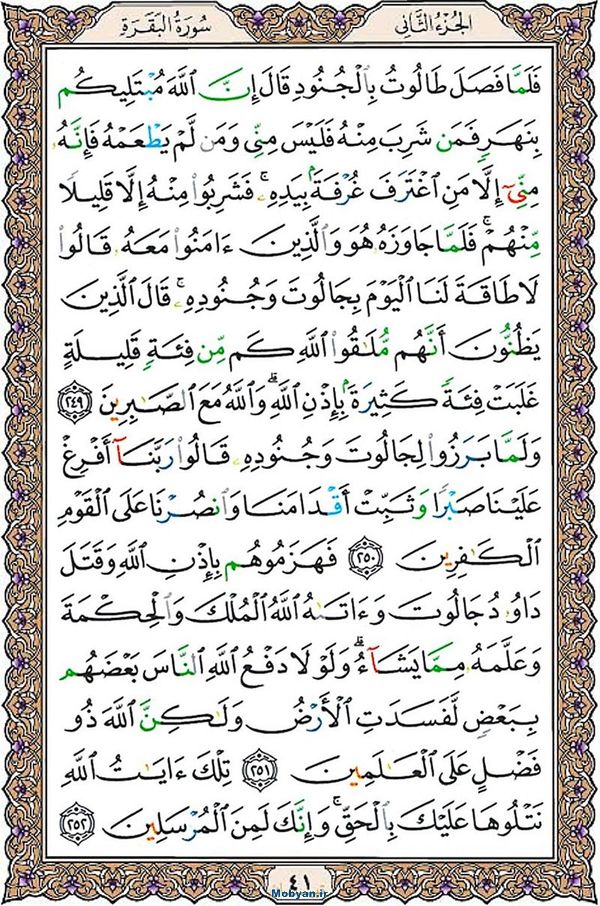 الجزء الثاني
سورة البقرة
فَلَمَّا فَصَلَ طَالُوتُ بِٱلْجُنُودِ قَالَ إِنَّ ٱللَّهَ مُبْتَلِيكُم
بِنَهَرٍ فَمَن شَرِبَ مِنْهُ فَلَيْسَ مِنِّي وَمَن لَّمْ يَطْعَمْهُ فَإِنَّهُۥ
مِنِّيٓ إِلَّا مَنِ ٱغْتَرَفَ غُرْفَةًۢ بِيَدِهِۦ ۚ فَشَرِبُوا۟ مِنْهُ إِلَّا قَلِيلًا
مِّنْهُمْ ۚ فَلَمَّا جَاوَزَهُۥ هُوَ وَٱلَّذِينَ ءَامَنُوا۟ مَعَهُۥ قَالُوا۟
لَا طَاقَةَ لَنَا ٱلْيَوْمَ بِجَالُوتَ وَجُنُودِهِۦ ۚ قَالَ ٱلَّذِينَ
يَظُنُّونَ أَنَّهُم مُّلَٰقُوا۟ ٱللَّهِ كَم مِّن فِئَةٍ قَلِيلَةٍ
غَلَبَتْ فِئَةً كَثِيرَةًۢ بِإِذْنِ ٱللَّهِ ۗ وَٱللَّهُ مَعَ ٱلصَّٰبِرِينَ ٢٤٩
وَلَمَّا بَرَزُوا۟ لِجَالُوتَ وَجُنُودِهِۦ قَالُوا۟ رَبَّنَآ أَفْرِغْ
عَلَيْنَا صَبْرًا وَثَبِّتْ أَقْدَامَنَا وَٱنصُرْنَا عَلَى ٱلْقَوْمِ
ٱلْكَٰفِرِينَ ٢٥٠ فَهَزَمُوهُم بِإِذْنِ ٱللَّهِ وَقَتَلَ
دَاوُۥدُ جَالُوتَ وَءَاتَىٰهُ ٱللَّهُ ٱلْمُلْكَ وَٱلْحِكْمَةَ
وَعَلَّمَهُۥ مِمَّا يَشَآءُ ۗ وَلَوْلَا دَفْعُ ٱللَّهِ ٱلنَّاسَ بَعْضَهُم
بِبَعْضٍ لَّفَسَدَتِ ٱلْأَرْضُ وَلَٰكِنَّ ٱللَّهَ ذُو
فَضْلٍ عَلَى ٱلْعَٰلَمِينَ ٢٥١ تِلْكَ ءَايَٰتُ ٱللَّهِ
نَتْلُوهَا عَلَيْكَ بِٱلْحَقِّ ۚ وَإِنَّكَ لَمِنَ ٱلْمُرْسَلِينَ ٢٥٢
٤١
Mobyan.ir